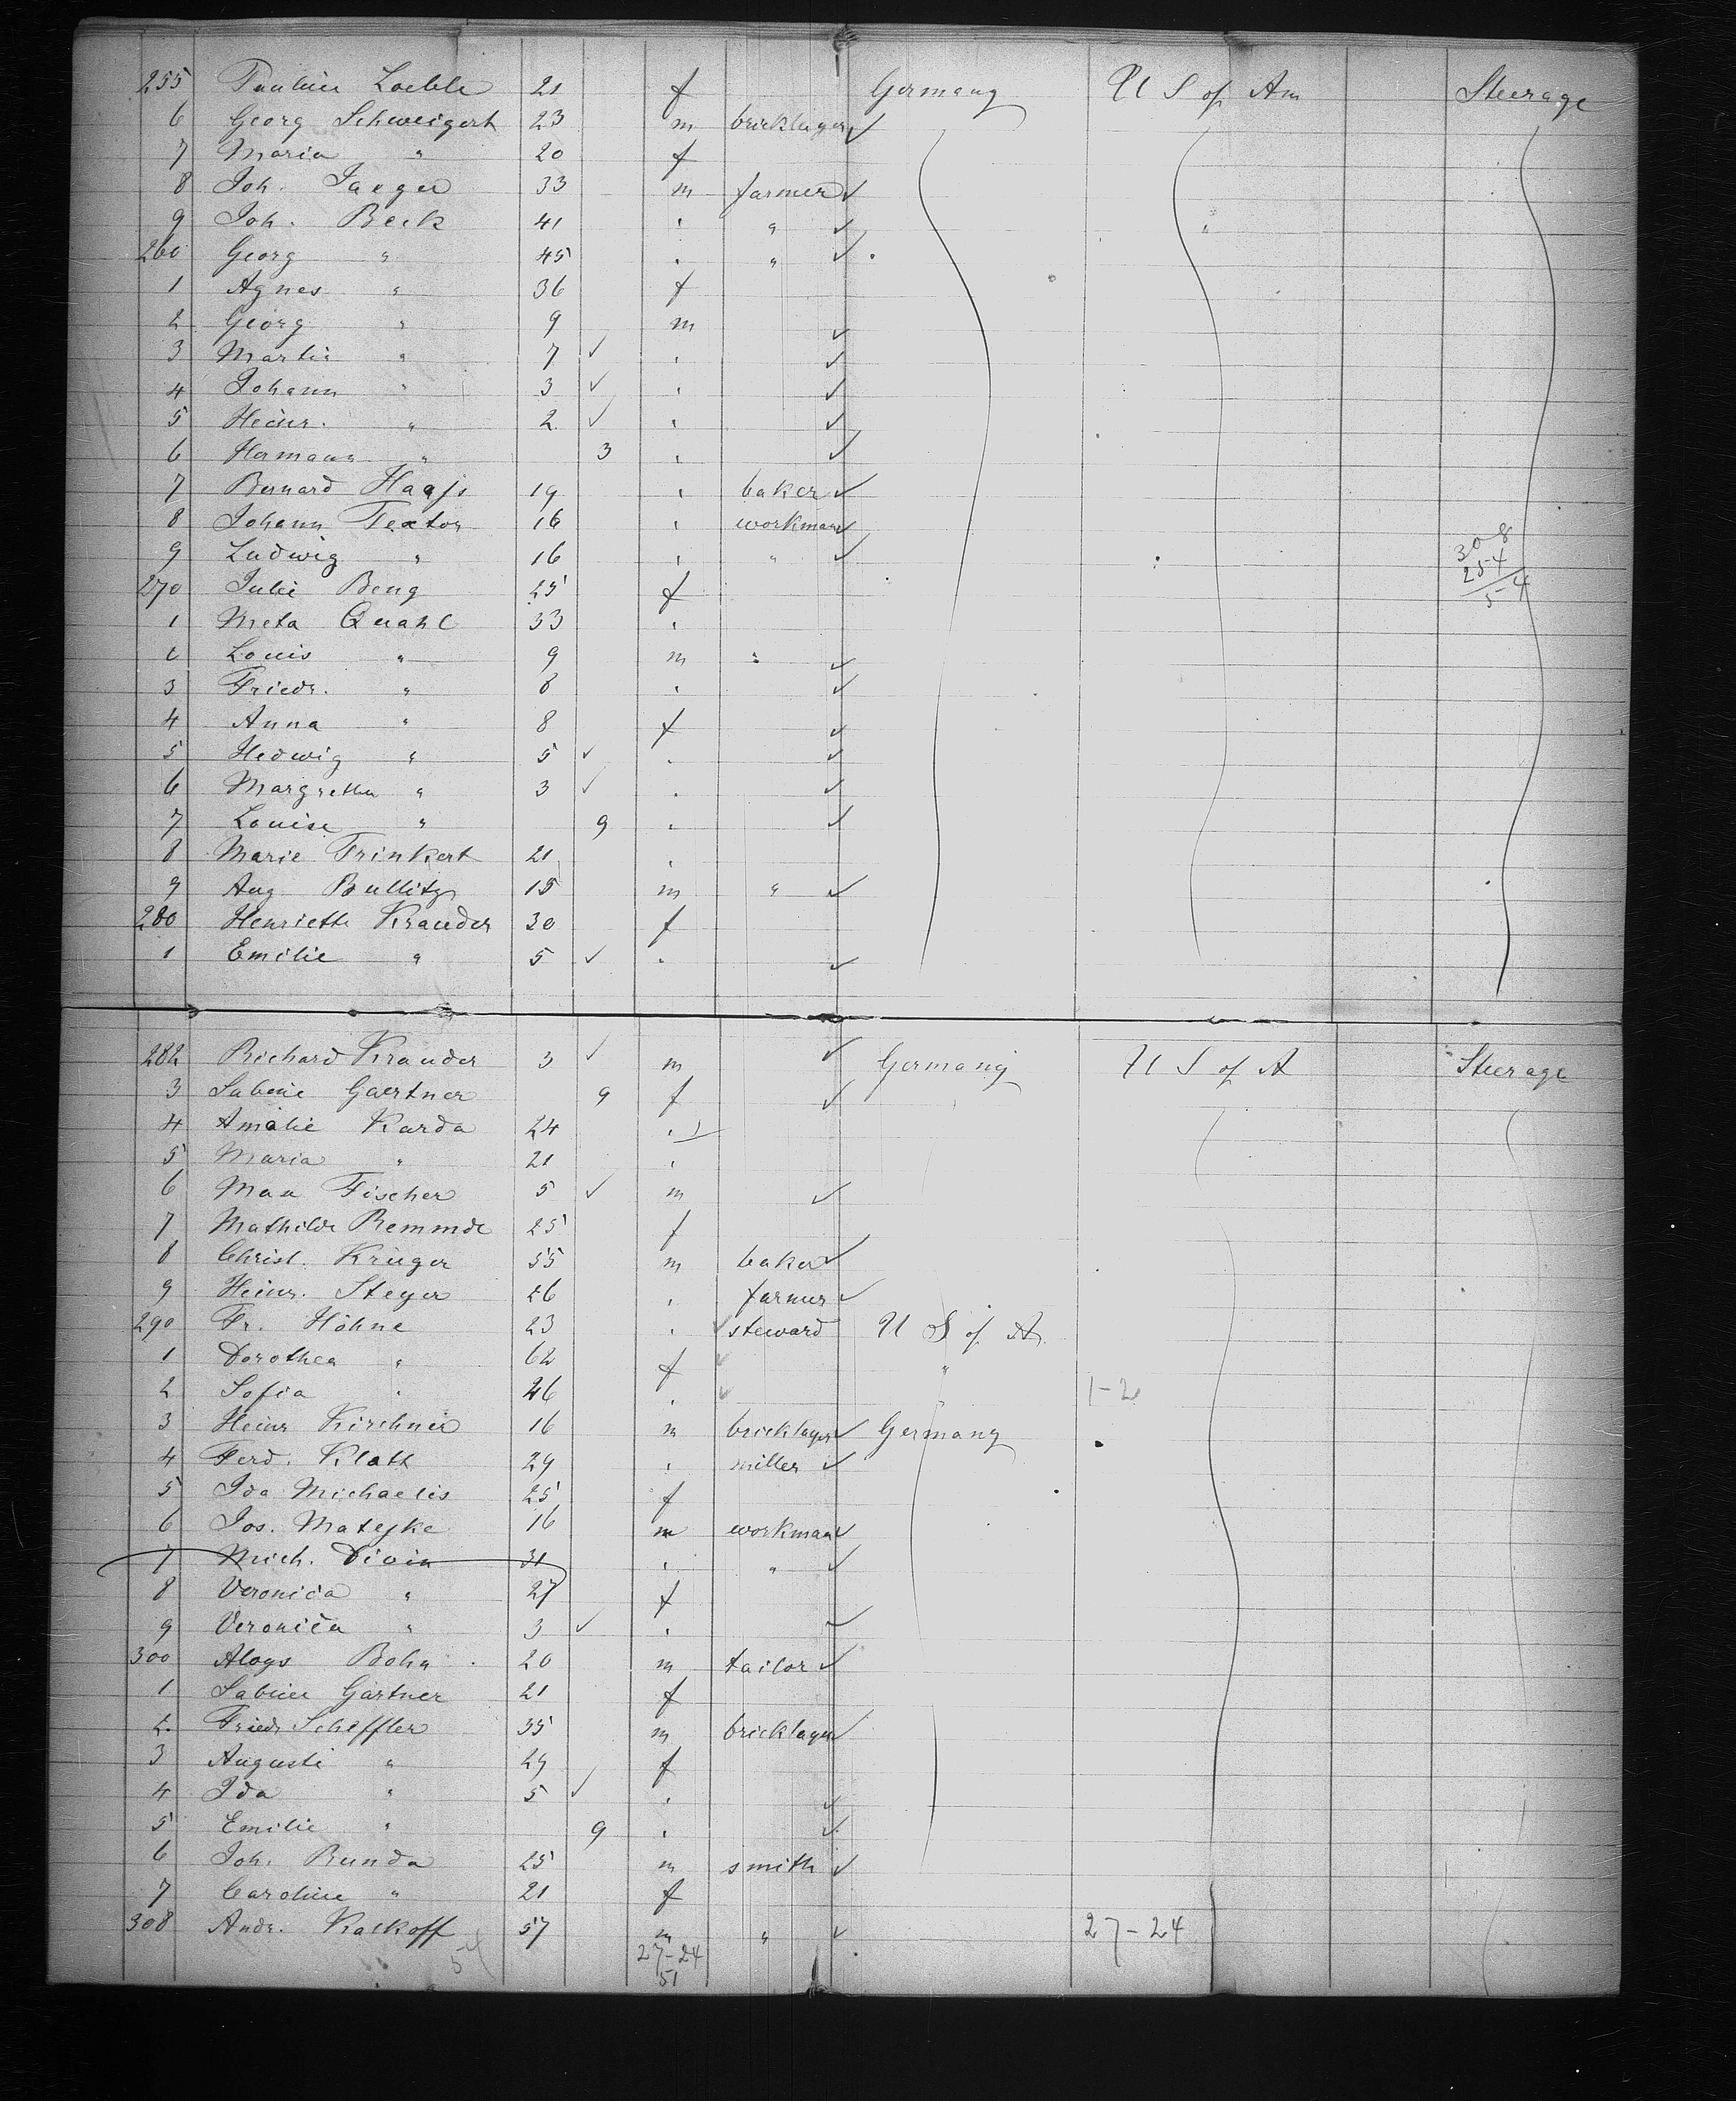 255 Pauline Loeble 21 f Germany U S of Am Steerage
6 Georg Schweigert 23 m bricklayer ✓
7 Maria " 20 f
8 Joh. Jaeger 33 m farmer ✓
9 Joh. Beck 41 " " ✓ "
260 Georg " 45 " " ✓
1 Agnes " 36 f
2 Georg " 9 m ✓
3 Martin " 7 ✓ " ✓
4 Johann " 3 ✓ " ✓
5 Heinr. " 2 ✓ " ✓
6 Hermann " 3 " ✓
7 Bernard Haafs 19 " baker ✓
8 Johann Textor 16 " workman ✓ 308
9 Ludwig " 16 " " ✓ 254
270 Julie Beng 25 f 54
1 Meta Quahl 33 "
2 Louis " 9 m " ✓
3 Friedr. " 8 " ✓
4 Anna " 8 f ✓
5 Hedwig " 5 ✓ " ✓
6 Margretha " 3 ✓ " ✓
7 Louise " 9 " ✓
8 Marie Trinkert 21 "
9 Aug. Bullitz 15 m " ✓
280 Henriette Krauder 30 f
1 Emilie " 5 ✓ " ✓
282 Richard Krauder 3 ✓ m ✓ Germany U S of A Steerage
3 Sabine Gaertner 9 f ✓
4 Amalie Karda 24 "
5 Maria " 21 "
6 Max Fischer 5 ✓ m ✓
7 Mathilde Remmde 25 f
8 Christ. Krüger 55 m baker ✓
9 Heinr. Steyer 26 " farmer ✓
290 Fr. Höhne 23 " ✓ steward U S of A
1 Dorothea " 62 f ✓ "
2 Sofia " 26 " ✓ " 1-2
3 Heinr Kirchner 16 m bricklayer ✓ Germany
4 Ferd. Klatt 29 " miller ✓
5 Ida Michaelis 25 f
6 Jos. Matejke 16 m workman ✓
7 Mich. Divin 31 " " ✓
8 Veronica " 27 f
9 Veronica " 3 ✓ " ✓
300 Aloys Bohn 20 m tailor ✓
1 Sabine Gärtner 21 f
2. Friedr Scheffler 35 m bricklayer ✓
3 Auguste " 29 f
4 Ida " 5 ✓ " ✓
5 Emilie " 9 " ✓
6 Joh. Runda 25 m smith ✓
7 Caroline " 21 f
308 Andr. Kalkoff 57 m " ✓ 27-24
54 27-24
51